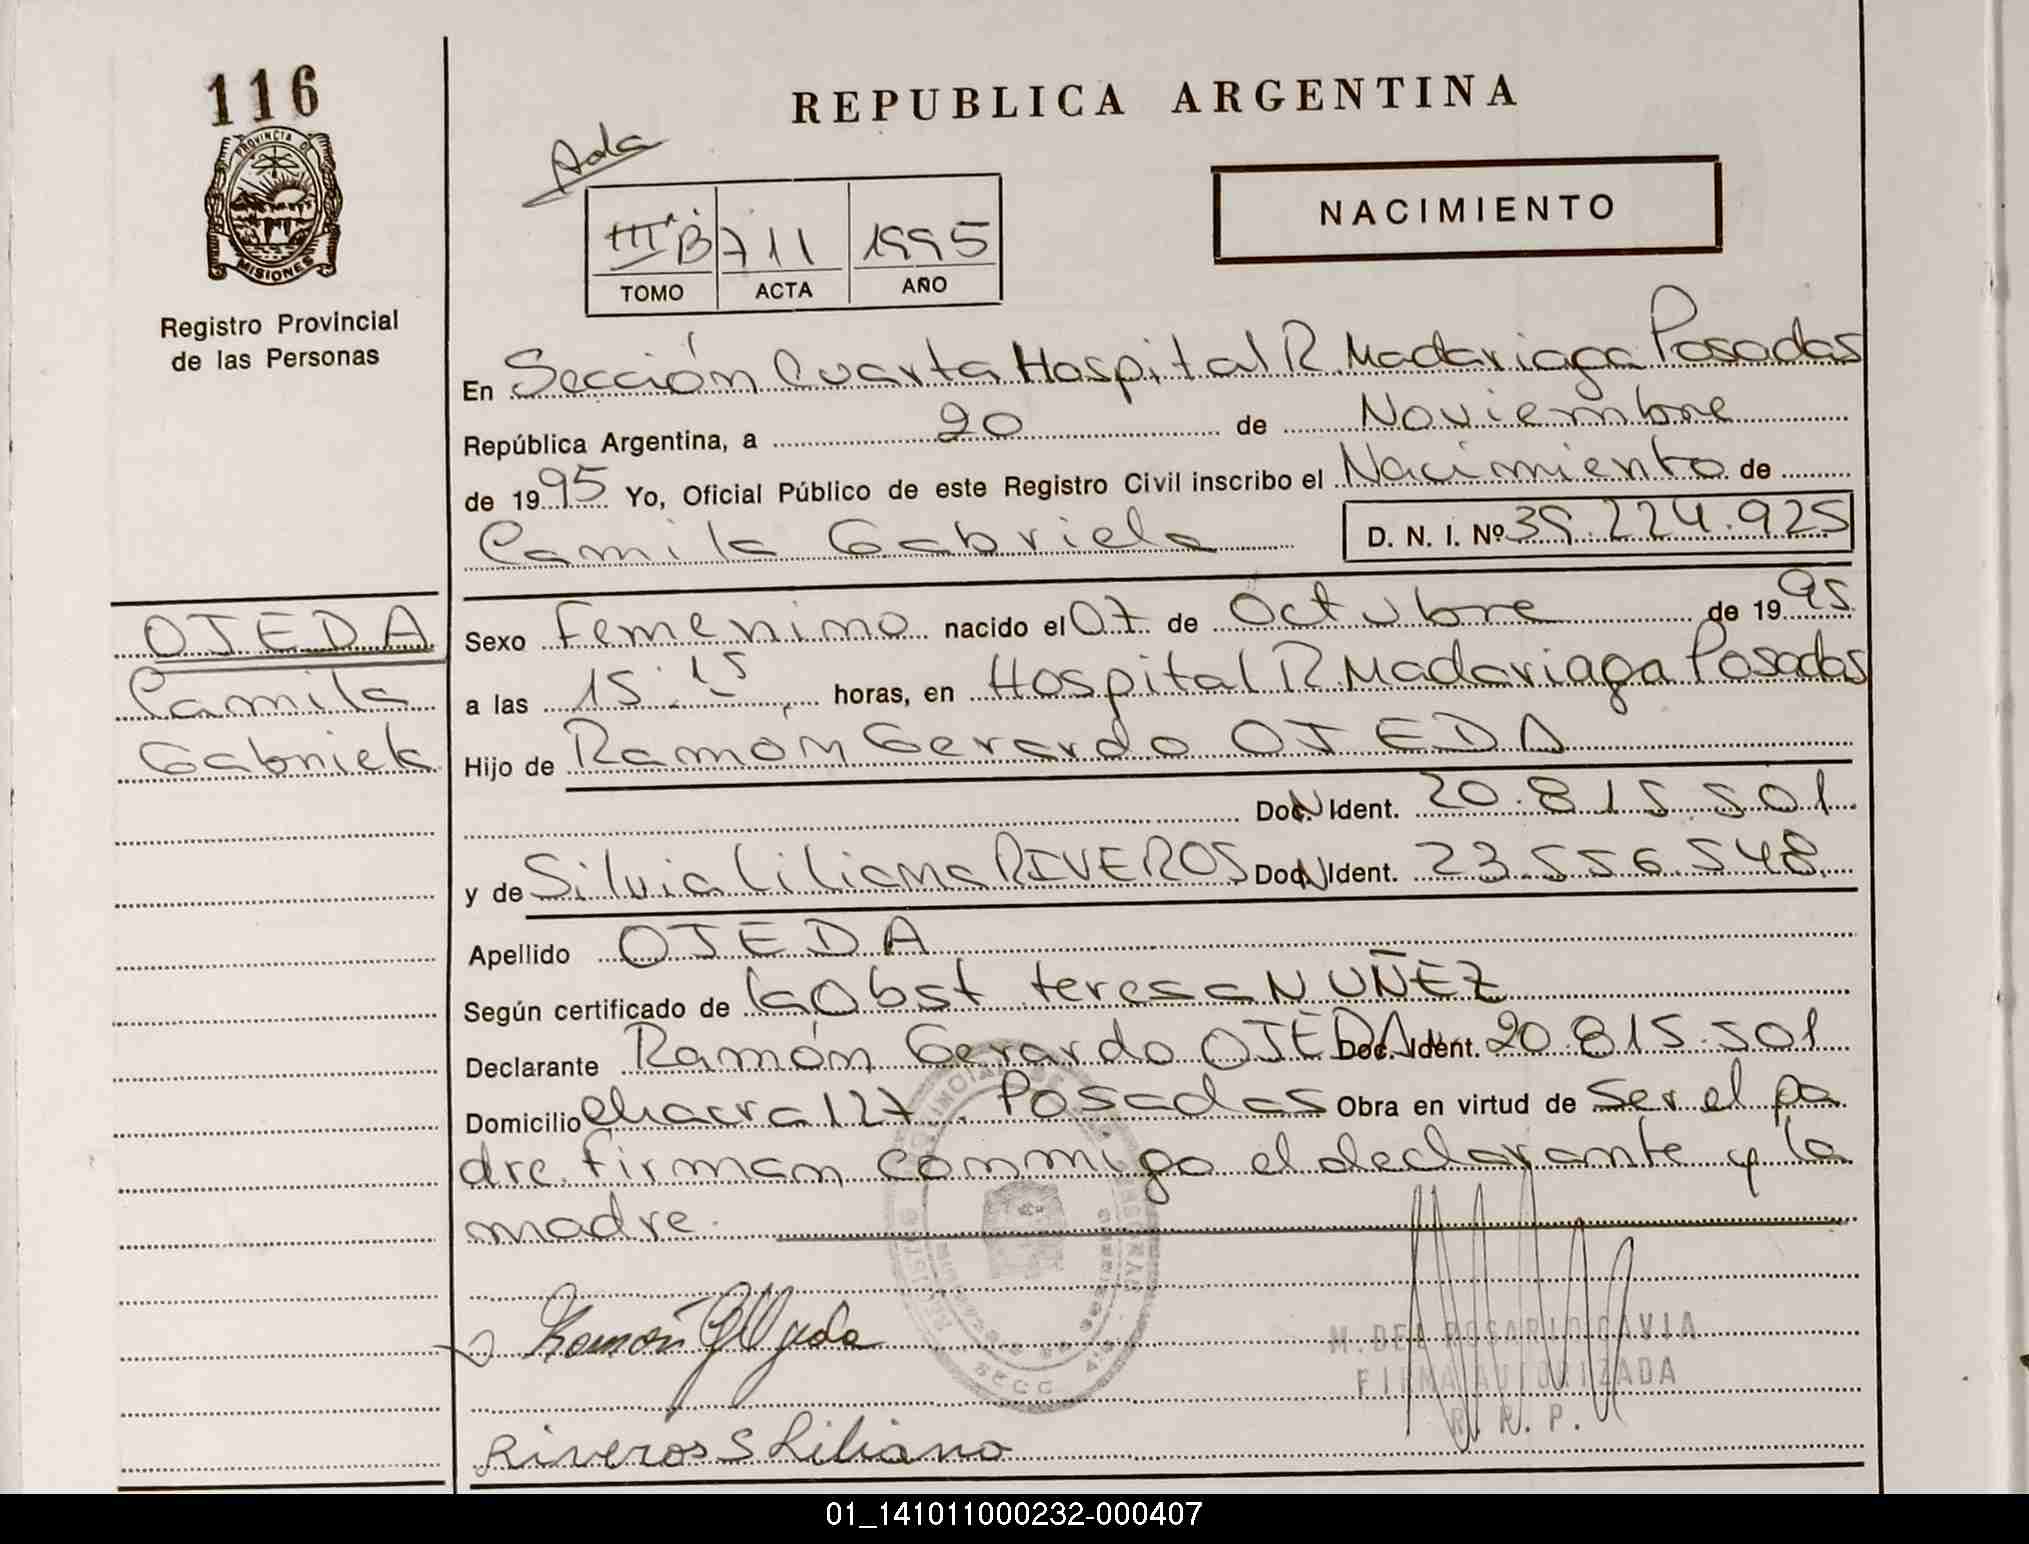 116
PROVINCIA DE
MISIONES
Registro Provincial
de las Personas
REPUBLICA ARGENTINA
Ada
NACIMIENTO
III B 711 1995
TOMO ACTA AÑO
En Sección Cuarta Hospital R. Madariaga Posadas
República Argentina, a 20 de Noviembre
de 1995 Yo, Oficial Público de este Registro Civil inscribo el Nacimiento de
Camila Gabriela D. N. I. Nº 39.224.925
OJEDA
Camila
Gabriela
Sexo Femenino nacido el 07 de Octubre de 1995
a las 15:15 horas, en Hospital R. Madariaga Posadas
Hijo de Ramón Gerardo OJEDA
Doc. Ident. 20.815.501
y de Silvia Liliana RIVEROS Doc. Ident. 23.556.548
Apellido OJEDA
Según certificado de la Obst teresa NUÑEZ
Declarante Ramón Gerardo OJEDA Doc. Ident. 20.815.501
Domicilio chacra 127. Posadas Obra en virtud de ser el pa
dre. firman conmigo el declarante y la
madre.
Ramón G Ojeda
M. DEL ROSARIO GAVIA
FIRMA AUTORIZADA
R. R. P.
Riveros S Liliana
01_141011000232-000407